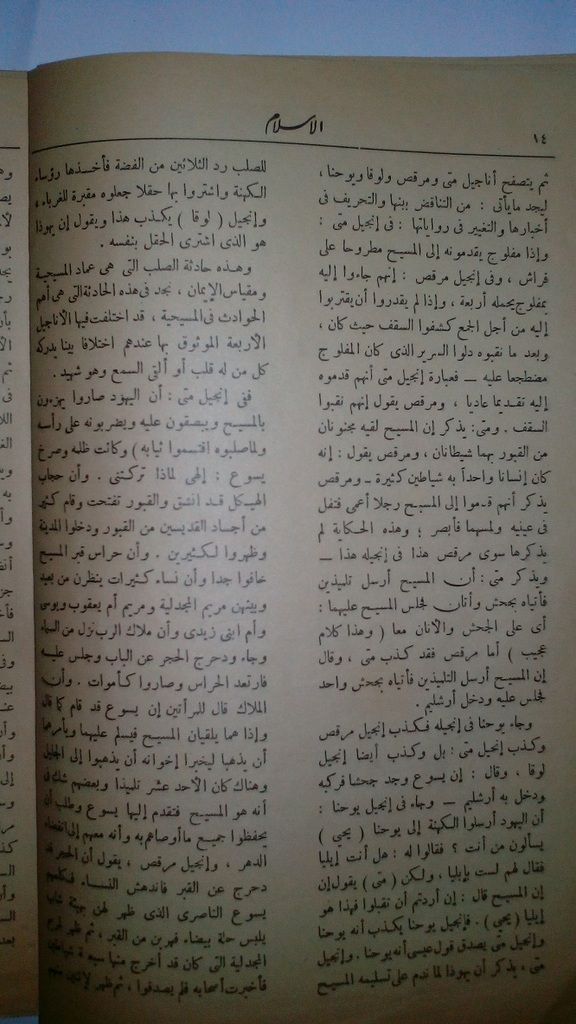 ١٤
الاسلام
ثم يتصفح أناجيل متى ومرقص ولوقا ويوحنا ،
ليجد مايأتى : من التناقض بينها والتحريف فى
أخبارها والتغيير فى رواياتها : فى إنجيل متى :
وإذا مفلوج يقدمونه إلى المسيح مطروحا على
فراش ، وفى إنجيل مرقص : إنهم جاءوا إليه
بمفلوج يحمله أربعة ، وإذا لم يقدروا أن يقتربوا
إليه من أجل الجمع كشفوا السقف حيث كان ،
وبعد ما نقبوه دلوا السرير الذى كان المفلوج
مضطجعا عليه — فعبارة إنجيل متى أنهم قدموه
إليه تقديما عاديا ، ومرقص يقول إنهم نقبوا
السقف . ومتى: يذكر إن المسيح لقيه مجنونان
من القبور بهما شيطانان ، ومرقص يقول : إنه
كان إنسانا واحداً به شياطين كثيرة — ومرقص
يذكر أنهم قدموا إلى المسيح رجلا أعمى فتفل
فى عينيه ولمسهما فأبصر ؛ وهذه الحكاية لم
يذكرها سوى مرقص هذا فى إنجيله هذا —
ويذكر متى : أن المسيح أرسل تلميذين
فأتياه بجحش وأتان فجلس المسيح عليهما :
أى على الجحش والأتان معا ( وهذا كلام
عجيب ) أما مرقص فقد كذب متى ، وقال
إن المسيح أرسل التلميذين فأتياه بجحش واحد
فجلس عليه ودخل أرشليم .
وجاء يوحنا فى إنجيله فكذب إنجيل مرقص
وكذب إنجيل متى : بل وكذب أيضا إنجيل
لوقا ، وقال : إن يسوع وجد جحشا فركبه
ودخل به أرشليم — وجاء فى إنجيل يوحنا :
أن اليهود أرسلوا الكهنة إلى يوحنا ( يحيى )
يسألون من أنت ؟ فقالوا له : هل أنت إيليا
فقال لهم لست بإيليا ، ولكن ( متى ) يقول إن
إن المسيح قال : إن أردتم أن تقبلوا فهذا هو
إيليا ( يحيى ) . فإنجيل يوحنا يكذب أنه يوحنا
وإنجيل متى يصدق قول عيسى أنه يوحنا . وإنجيل
متى ، يذكر أن يهوذا لما ندم على تسليمه المسيح
للصلب رد الثلاثين من الفضة فأخذها رؤساء
الكهنة واشتروا بها حقلا جعلوه مقبرة للغرباء ،
وإنجيل ( لوقا ) يكذب هذا ويقول إن يهوذا
هو الذى اشترى الحقل بنفسه .
وهذه حادثة الصلب التى هى عماد المسيحية
ومقياس الإيمان ، نجد فى هذه الحادثة التى هى أهم
الحوادث فى المسيحية ، قد اختلفت فيها الأناجيل
الأربعة الموثوق بها عندهم اختلافا بينا يدركه
كل من له قلب أو ألقى السمع وهو شهيد .
ففى إنجيل متى : أن اليهود صاروا يهزءون
بالمسيح ويبصقون عليه ويضربونه على رأسه
ولما صلبوه اقتسموا ثيابه ) وكانت ظلمه وصرخ
يسوع : إلهى لماذا تركتنى . وأن حجاب
الهيكل قد انشق والقبور تفتحت وقام كثير
من أجساد القديسين من القبور ودخلوا المدينة
وظهروا لكثيرين . وأن حراس قبر المسيح
خافوا جدا وأن نساء كثيرات ينظرن من بعيد
وبينهن مريم المجدلية ومريم أم يعقوب ويوسى
وأم ابنى زيدى وأن ملاك الرب نزل من السماء
وجاء ودحرج الحجر عن الباب وجلس عليه
فارتعد الحراس وصاروا كأموات . وأن
الملاك قال للمرأتين إن يسوع قد قام كما قال
وإذا هما يلقيان المسيح فيسلم عليهما ويأمرهما
أن يذهبا ليخبرا إخوانه أن يذهبوا إلى الجليل
وهناك كان الأحد عشر تلميذا وبعضهم شك فى
أنه هو المسيح فتقدم إليها يسوع وطلب أن
يحفظوا جميع ما أوصاهم به وأنه معهم إلى انقضاء
الدهر ، وإنجيل مرقص ، يقول أن الحجر قد
دحرج عن القبر فاندهش النساء فكلمهم
يسوع الناصرى الذى ظهر لهن بهيئة شاب
يلبس حلة بيضاء فهربن من القبر ، ثم ظهر لمريم
المجدلية التى كان قد أخرج منها سبعة شياطين
فأخبرت أصحابه فلم يصدقوا ، ثم ظهر لاثنين منهم